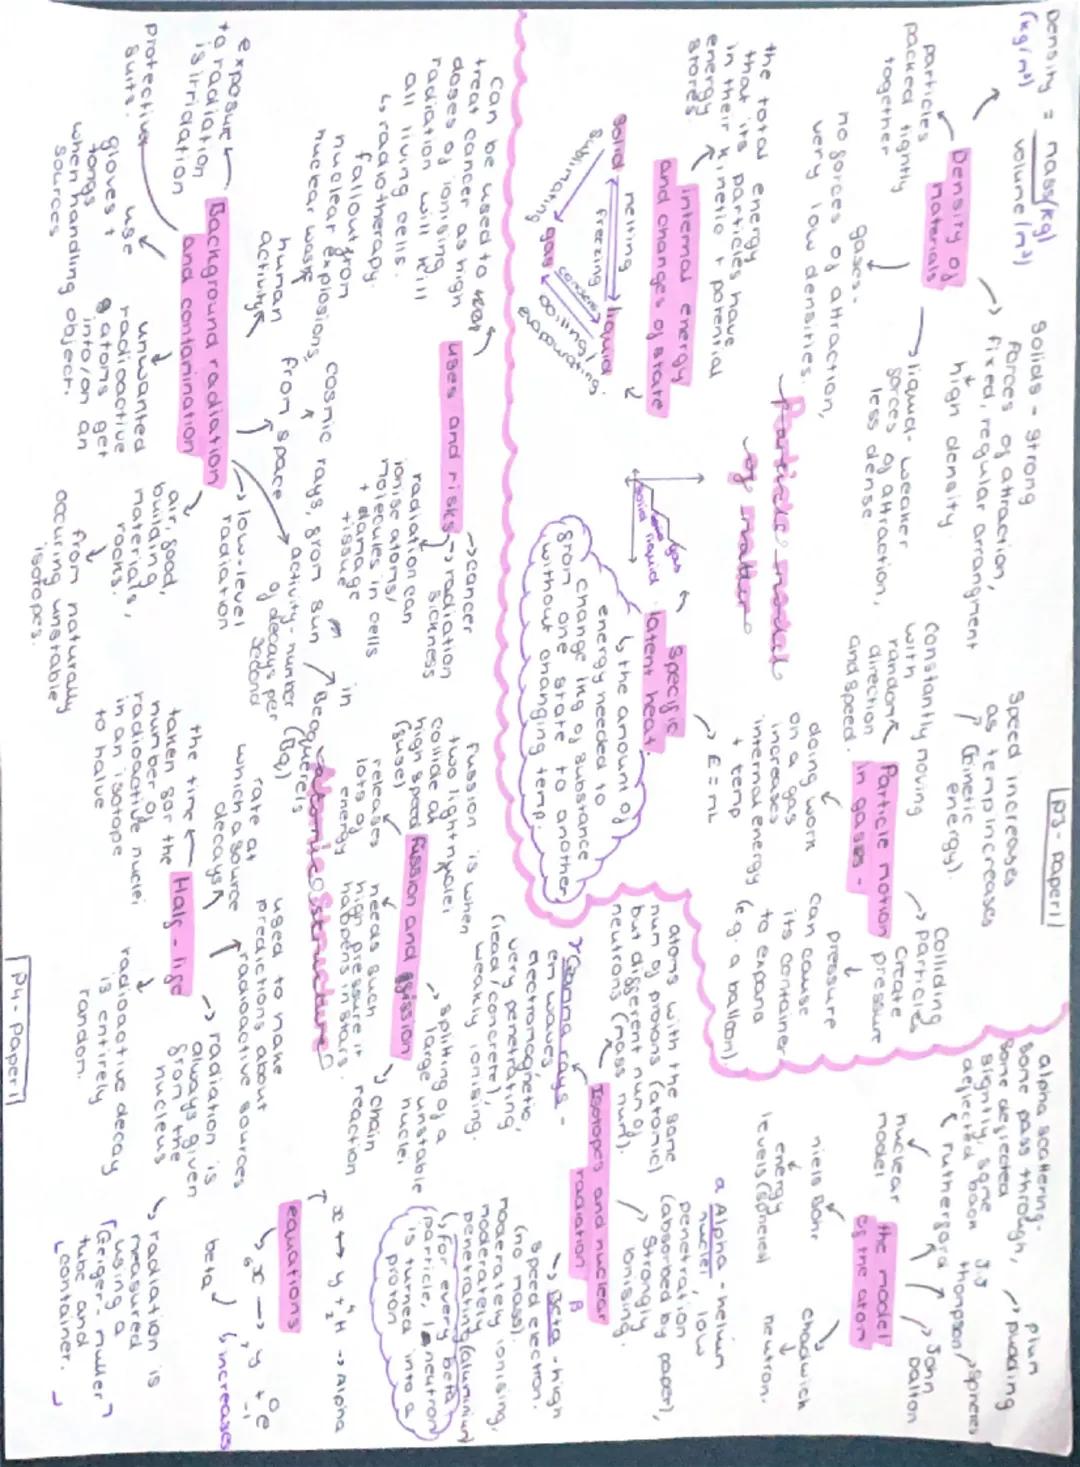 Density = mass(kg)
(kg/m³) volume(m³)
particles
packed tightly
together
Density of
materials
solids - strong
forces of attraction,
fixed, regular arrangment
high density.
liquid - weaker
forces of attraction,
less dense
gases -
no forces of attraction,
very low densities.
the total energy
that its particles have
in their kinetic + potential
energy
stores.
internal energy
and changes of state
solid
melting
freezing
liquid
sublimating
gas
boiling/
evaporating.
Particle model
of matter
solid
liquid
gas
Specific
latent heat.
↳ the amount of
energy needed to
change 1kg of substance
from one state to another
without changing temp.
E = mL
P3 - paper 1
speed increases
as temp increases
(kinetic
energy).
constantly moving
with
random
direction
and speed.
Particle motion
in gases -
Colliding
particles
create
pressure
pressure
can cause
its container
to expand
(e.g. a balloon)
doing work
on a gas
increases
internal energy
+ temp
alpha scattering -
some pass through,
some deflected
slightly, some
deflected back
rutherford
nuclear
model
the model
of the atom
plum
pudding
J.J
thompson
spheres
John
Dalton
niels Bohr
energy
levels
chadwick
neutron.
atoms with the same
num of protons (atomic)
but different num of
neutrons (mass num).
Isotopes and nuclear
radiation
α Alpha - helium
nuclei, low
penetration
(absorbed by paper),
strongly
ionising.
β
Beta - high
speed electron.
(no mass).
moderately ionising,
moderately
penetrating (aluminium)
(for every beta
particle, 1 neutron
is turned into a
proton
γ Gamma rays -
em waves -
electromagnetic,
very penetrating,
(lead/concrete),
weakly ionising.
uses and risks
can be used to
treat cancer as high
doses of ionising
radiation will kill
all living cells.
↳ radiotherapy.
cancer
radiation
sickness
radiation can
ionise atoms/
molecules in cells
+ damage
tissue
fusion is when
two light nuclei
collide at
high speed
(fuse)
releases
lots of
energy
fusion and fission
needs such
high pressure it
happens in stars.
splitting of a
large unstable
nuclei
chain
reaction
Atomic Structure
Background radiation
and contamination
exposure
to radiation
is irradiation
Protective
suits.
use
gloves +
tongs
when handling
sources
unwanted
radioactive
atoms get
into/on an
object.
fallout from
nuclear explosions,
nuclear waste
human
activity
cosmic rays, from sun
from space
low-level
radiation
air, food,
building
materials,
rocks.
from naturally
occuring unstable
isotopes.
activity - number
of decays per
second
in
Becquerels
(Bq)
Half-life
the time
taken for the
number of
radioactive nuclei
in an isotope
to halve
rate at
which a source
decays
used to make
predictions about
radioactive sources
radiation is
always given
from the
nucleus
radioactive decay
is entirely
random.
radiation is
measured
using a
Geiger-muller
tube and
container.
equations
x → y + ⁴₂H → Alpha
beta
increases
P4 - paper 1